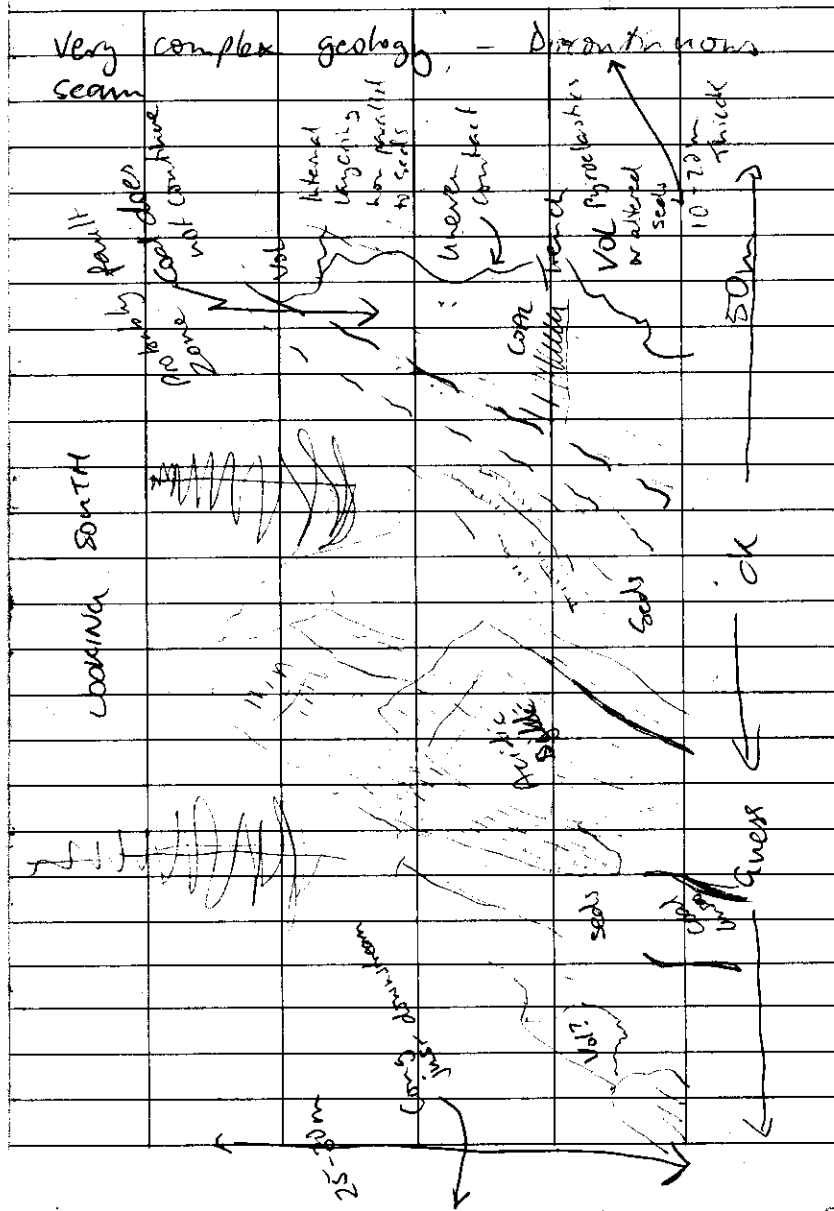 Very complex geology - Discontinuous
seam
LOOKING SOUTH
Probably fault
zone
Coal does
not continue
Vol
Internal
Layering
non parallel
to seds
Uneven
contact
COAL
Trench
Vol Pyroclastics
or altered
seds
10-20m
Thick
50m
Seds
ok
Acidic
seds
Guess
Vol?
just downstream
25-30m